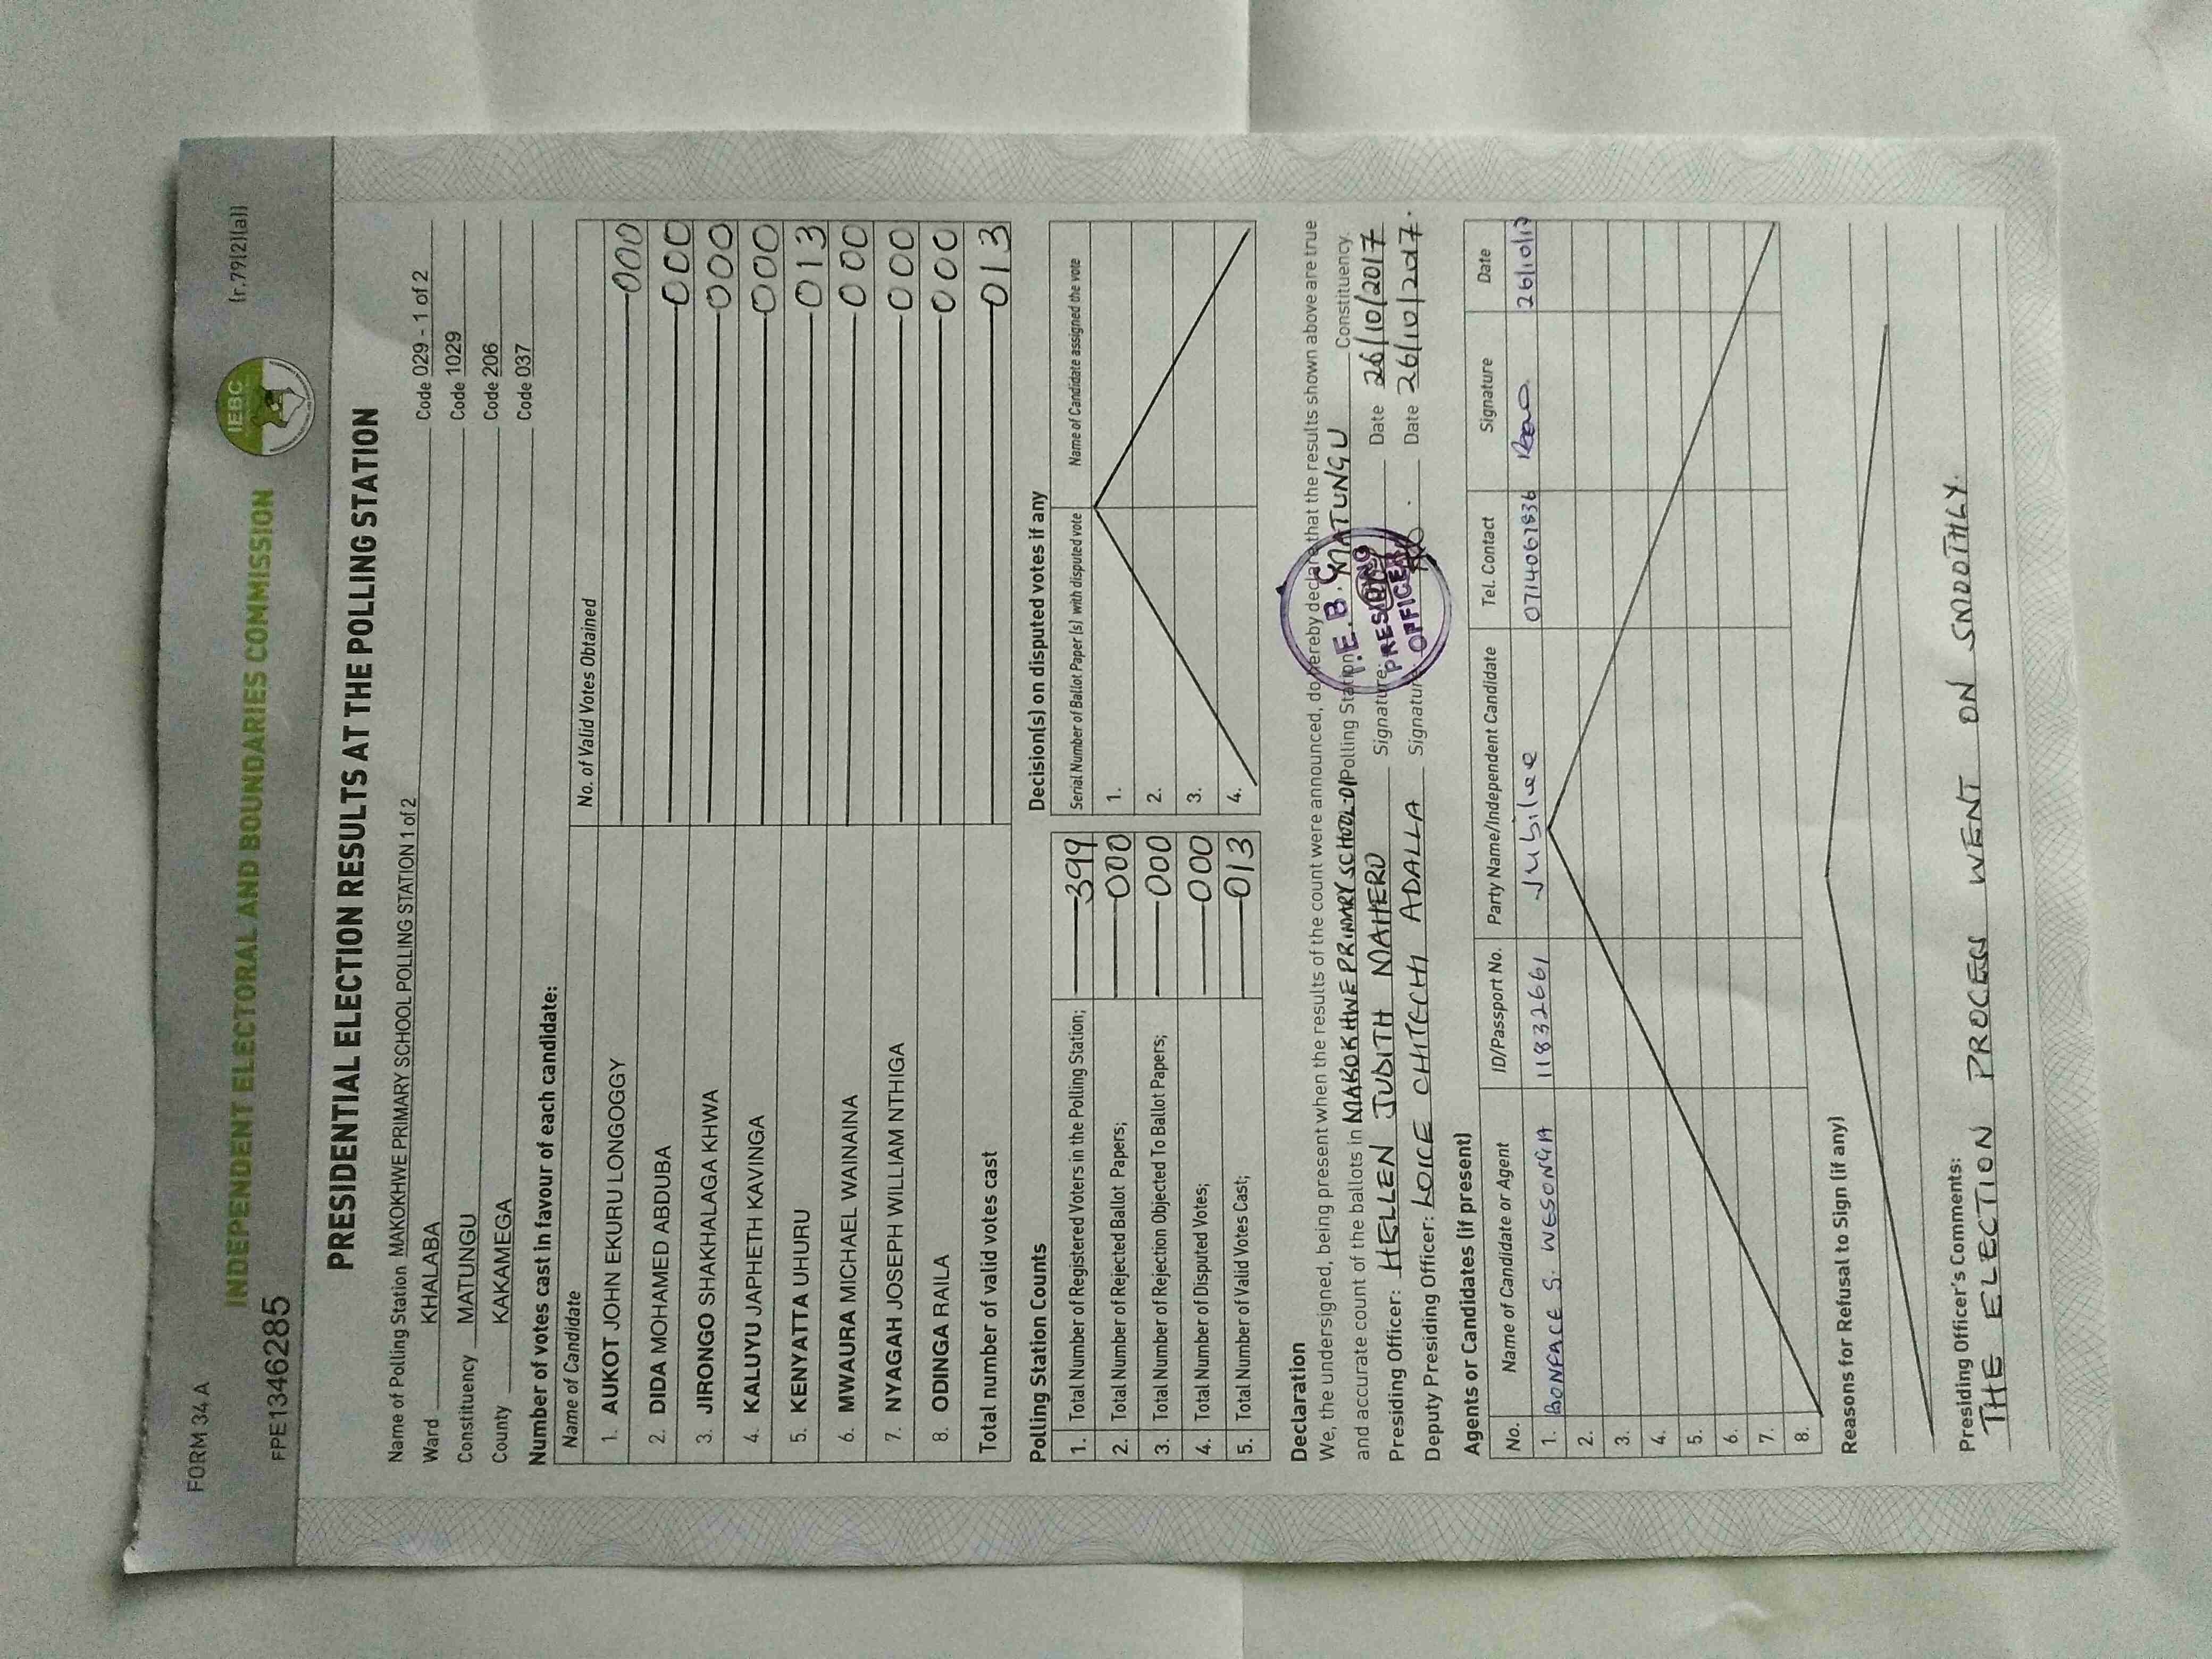 FORM 34 A (r.79(2)(a))
FPE1346285
IEBC
INDEPENDENT ELECTORAL AND BOUNDARIES COMMISSION
PRESIDENTIAL ELECTION RESULTS AT THE POLLING STATION
Name of Polling Station MAKOKHWE PRIMARY SCHOOL POLLING STATION 1 of 2 Code 029 - 1 of 2
Ward KHALABA Code 1029
Constituency MATUNGU Code 206
County KAKAMEGA Code 037
Number of votes cast in favour of each candidate:
Name of Candidate No. of Valid Votes Obtained
1. AUKOT JOHN EKURU LONGOGGY 000
2. DIDA MOHAMED ABDUBA 000
3. JIRONGO SHAKHALAGA KHWA 000
4. KALUYU JAPHETH KAVINGA 000
5. KENYATTA UHURU 013
6. MWAURA MICHAEL WAINAINA 000
7. NYAGAH JOSEPH WILLIAM NTHIGA 000
8. ODINGA RAILA 000
Total number of valid votes cast 013
Polling Station Counts
1. Total Number of Registered Voters in the Polling Station; 399
2. Total Number of Rejected Ballot Papers; 000
3. Total Number of Rejection Objected To Ballot Papers; 000
4. Total Number of Disputed Votes; 000
5. Total Number of Valid Votes Cast; 013
Decision(s) on disputed votes if any
Serial Number of Ballot Paper (s) with disputed vote Name of Candidate assigned the vote
1.
2.
3.
4.
Declaration
We, the undersigned, being present when the results of the count were announced, do hereby declare that the results shown above are true
and accurate count of the ballots in MAKOKHWE PRIMARY SCHOOL-01 Polling Station MATUNGU Constituency.
Presiding Officer: HELLEN JUDITH Signature: Date 26/10/2017
Deputy Presiding Officer: LOICE CHITECHI ADALLA Signature: Date 26/10/2017.
I.E.B.C
PRESIDING
OFFICER
Agents or Candidates (if present)
No. Name of Candidate or Agent ID/Passport No. Party Name/Independent Candidate Tel. Contact Signature Date
1. BONFACE S. WESONGA 11832661 Jubilee 0714061836 26/10/17
2.
3.
4.
5.
6.
7.
8.
Reasons for Refusal to Sign (if any)
Presiding Officer's Comments:
THE ELECTION PROCESS WENT ON SMOOTHLY.